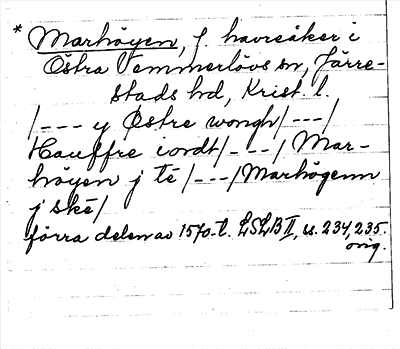 * Marhöyen, f. havreåker i
Östra Vemmerlövs sn, Järre-
stads hd, Krist. l.
/--- y Østre wongh/---/
Hauffre iordt/---/ Mar-
höyen j té/---/Marhögenn
j ské/
förra delen av 1570-t. LSLB II, s. 234, 235.
orig.